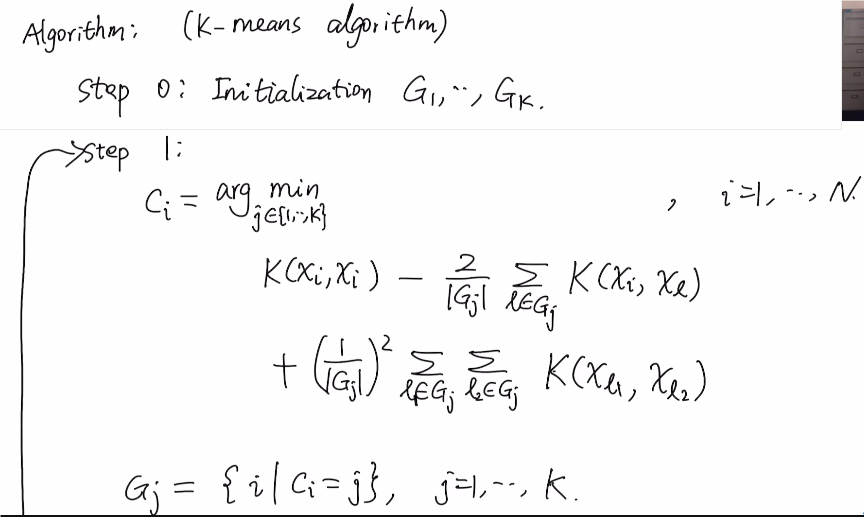 Algorithm: (K-means algorithm)
Step 0: Initialization G₁, ⋯, G_K.
Step 1:
C_i = arg min_{j∈{1,⋯,K}} , i=1, ⋯, N.
K(x_i, x_i) − \frac{2}{|G_j|} \sum_{ℓ∈G_j} K(x_i, x_ℓ)
+ (\frac{1}{|G_j|})^2 \sum_{ℓ_1∈G_j} \sum_{ℓ_2∈G_j} K(x_{ℓ_1}, x_{ℓ_2})
G_j = { i | C_i = j }, j=1, ⋯, K.